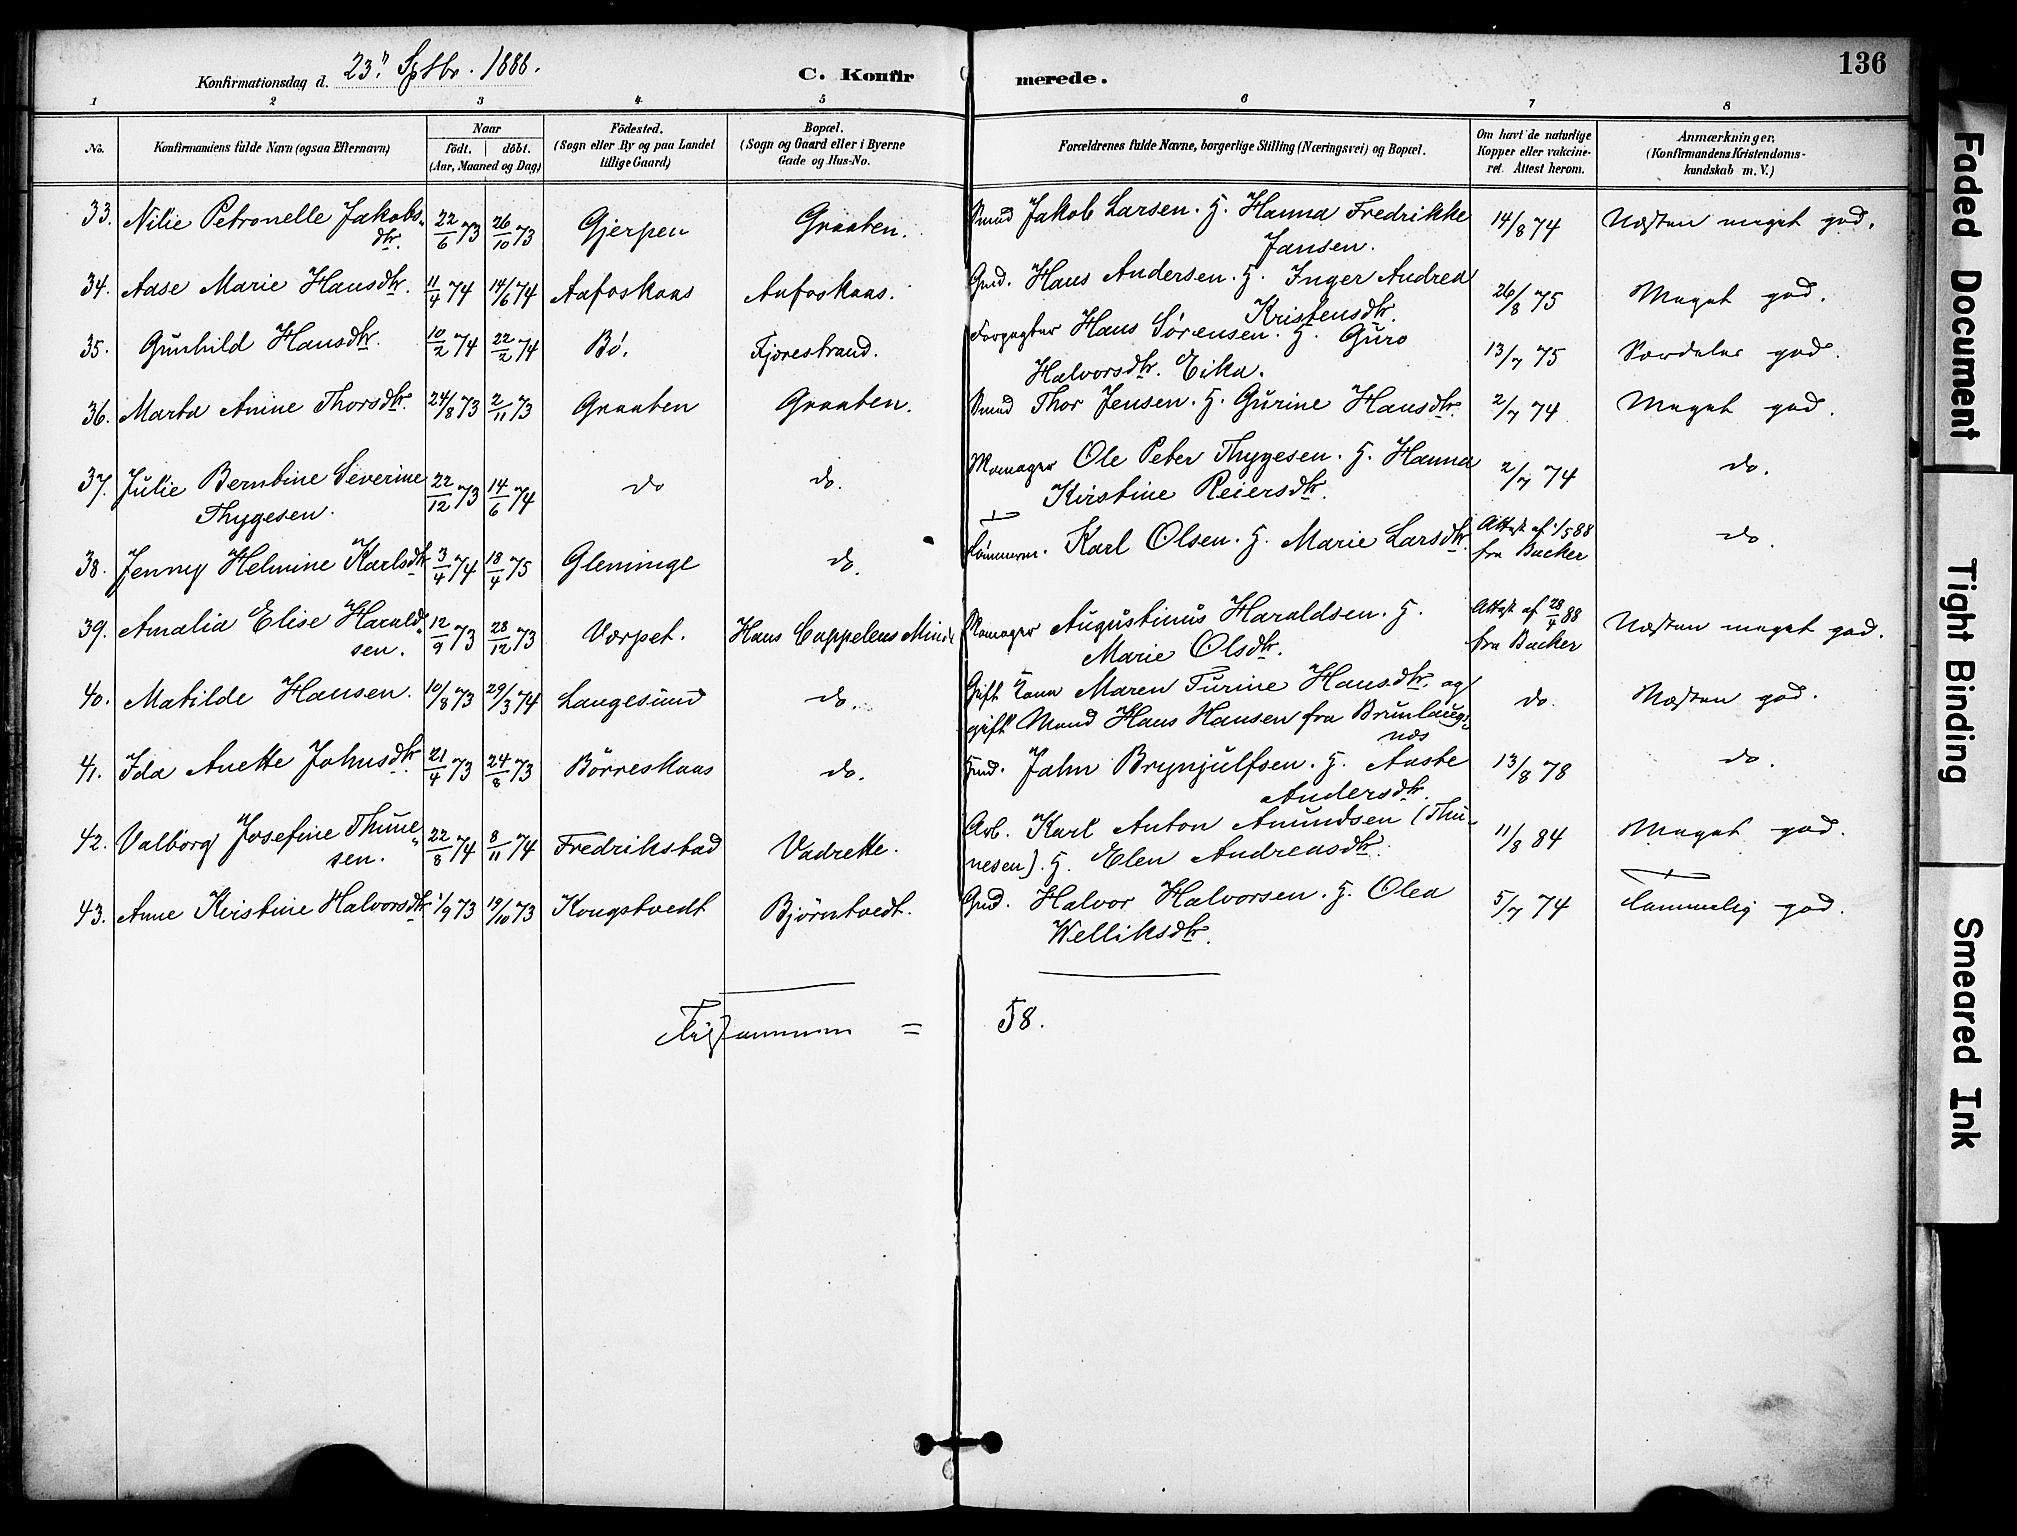 136
Konfirmationsdag d. 23' Sptbr. 1888.
C. Konfirmerede.
1 2 3 4 5 6 7 8
No.
Konfirmandens fulde Navn (ogsaa Efternavn)
Naar
födt. döbt.
(Aar, Maaned og Dag)
Födested.
(Sogn eller By og paa Landet
tillige Gaard)
Bopæl.
(Sogn og Gaard eller i Byerne
Gade og Hus-No.
Forældrenes fulde Navne, borgerlige Stilling (Næringsvei) og Bopæl.
Om havt de naturlige
Kopper eller vakcine-
ret. Attest herom.
Anmærkninger,
(Konfirmandens Kristendoms-
kundskab m. V.)
33. Nilie Petronelle Jakobs- 22/6 73 26/10 73 Gjerpen Graaten. Smed Jakob Larsen. H. Hanna Fredrikke 14/8 74 Næsten meget god.
dtr. Jansen.
34. Aase Marie Hansdtr. 11/4 74 14/6 74 Aafoskaas Aafoskaas. Gmd. Hans Andersen. H. Inger Andrea 26/8 75 Meget god.
Kristensdtr.
35. Gunhild Hansdtr. 10/2 74 22/2 74 Bö. Fjærestrand. Forpagter Hans Sörensen. H. Guro 13/7 75 Særdeles god.
Halvorsdtr. Eika.
36. Marta Anine Thorsdtr. 24/8 73 2/11 73 Graaten Graaten. Smed Thor Jensen. H. Gurine Hansdtr. 2/7 74 Meget god.
37. Julie Berntine Severine 22/12 73 14/6 74 do do. Ole Peter Thygesen. H. Hanna 2/7 74 do.
Thygesen. Kirstine Reiersdtr.
38. Jenny Helmine Karlsdtr 3/4 74 18/4 75 Gleminge do. Tömmerm. Karl Olsen. H. Marie Larsdtr. Attest af 1/5 88 do.
fra Backer
39. Amalia Elise Harald- 12/9 73 28/12 73 Værpet. Hans Cappelens Minde Augustinus Haraldsen. H. Attest af 28/4 88 Næsten meget god.
sen. Marie Olsdtr. fra Backer
40. Matilde Hansen. 10/8 73 29/3 74 Langesund do. Gift Kone Maren Turine Hansdtr. og do. Næsten god.
gift Mand Hans Hansen fra Brunlaug-
næs
41. Ida Anette Johnsdtr 21/4 73 24/8 73 Börreskaas do. Hmd. John Brynjulfsen. H. Aaste 13/8 78 do.
Andersdtr.
42. Valborg Josefine Thune- 22/8 74 8/11 74 Fredrikstad Vadrette. Arb. Karl Anton Amundsen (Thu- 11/8 84 Meget god.
sen. nesen). H. Elen Andreasdtr.
43. Anne Kirstine Halvorsdtr 1/9 73 19/10 73 Kongstvedt Björntvedt. Gmd. Halvor Halvorsen. H. Olea 5/7 74 Temmelig god.
Welliksdtr.
Tilsammen = 58.
Faded Document
Tight Binding
Smeared Ink